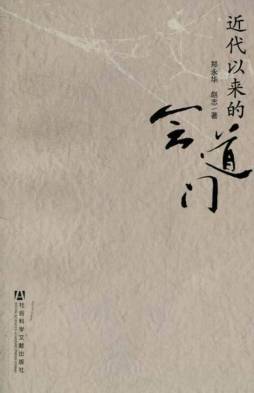 近代以来的
会道门
郑永华 赵志/著
社会科学文献出版社